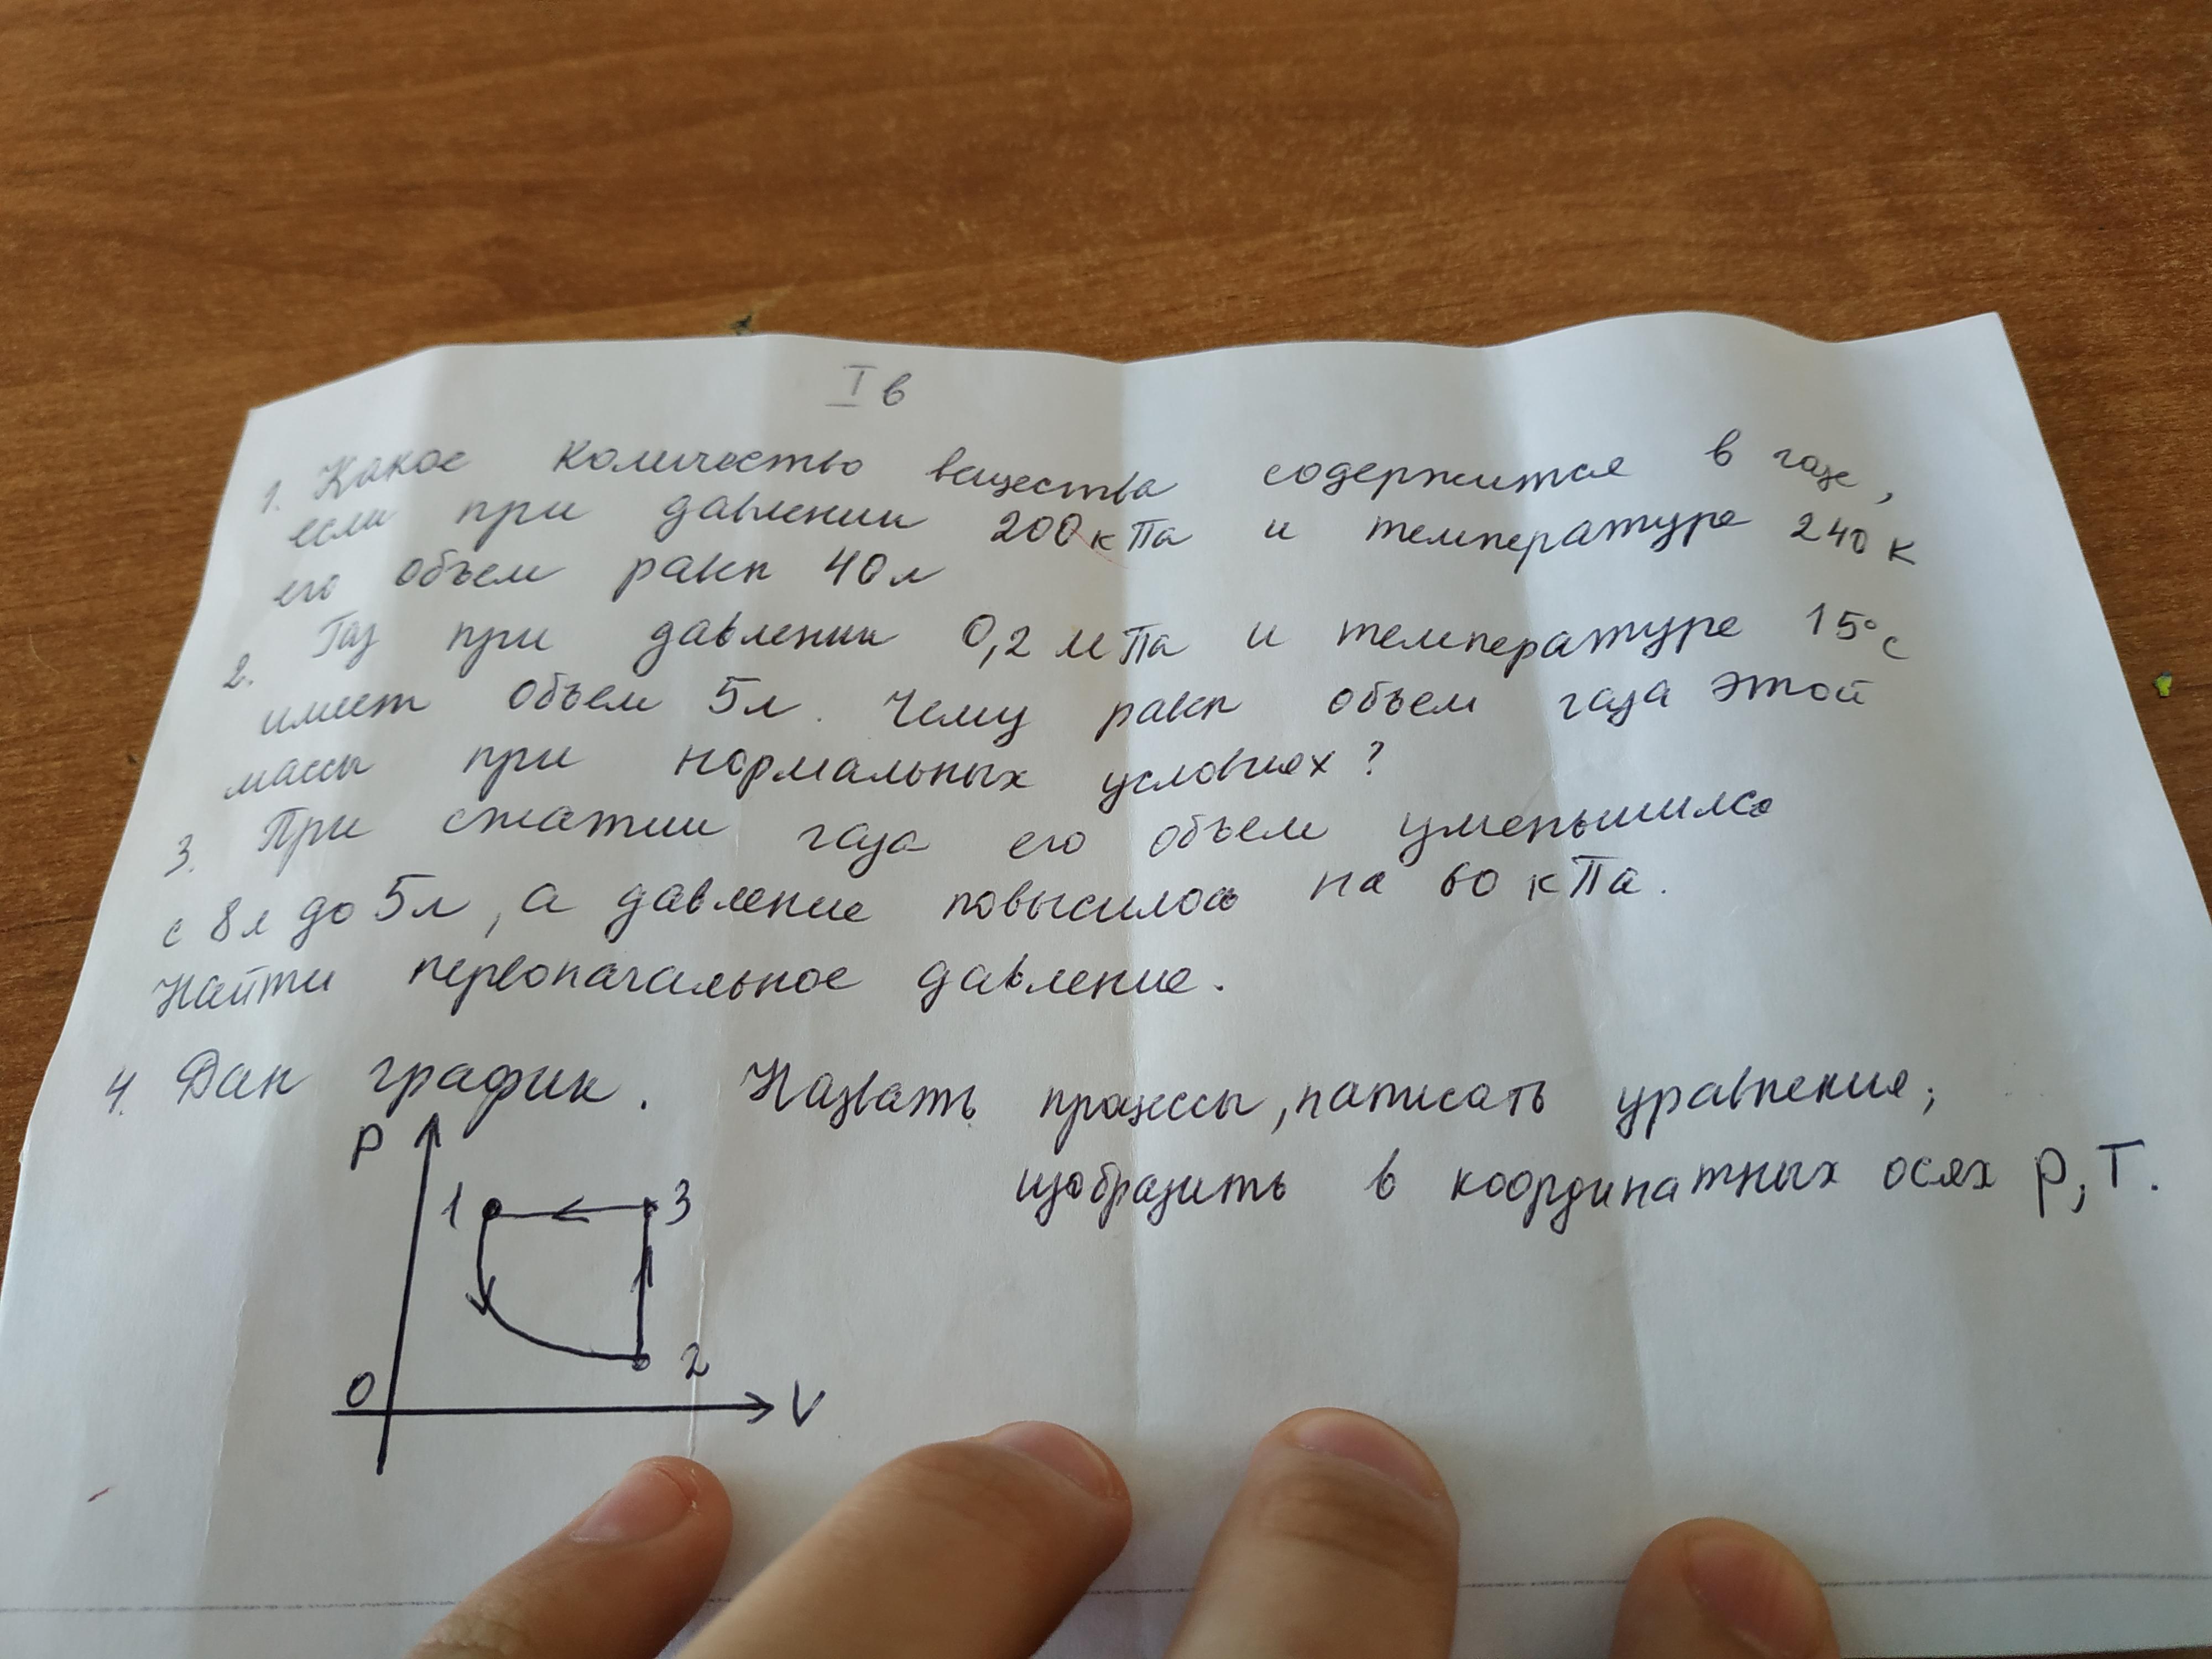 I в
1. Какое количество вещества содержится в газе,
если при давлении 200 кПа и температуре 240 К
его объем равен 40 л
2. Газ при давлении 0,2 МПа и температуре 15°С
имеет объем 5 л. Чему равен объем газа этой
массы при нормальных условиях?
3. При сжатии газа его объем уменьшился
с 8 л до 5 л, а давление повысилось на 60 кПа.
Найти первоначальное давление.
4. Дан график. Назвать процессы, написать уравнения;
изобразить в координатных осях p, T.
P
1 3
2
0
V